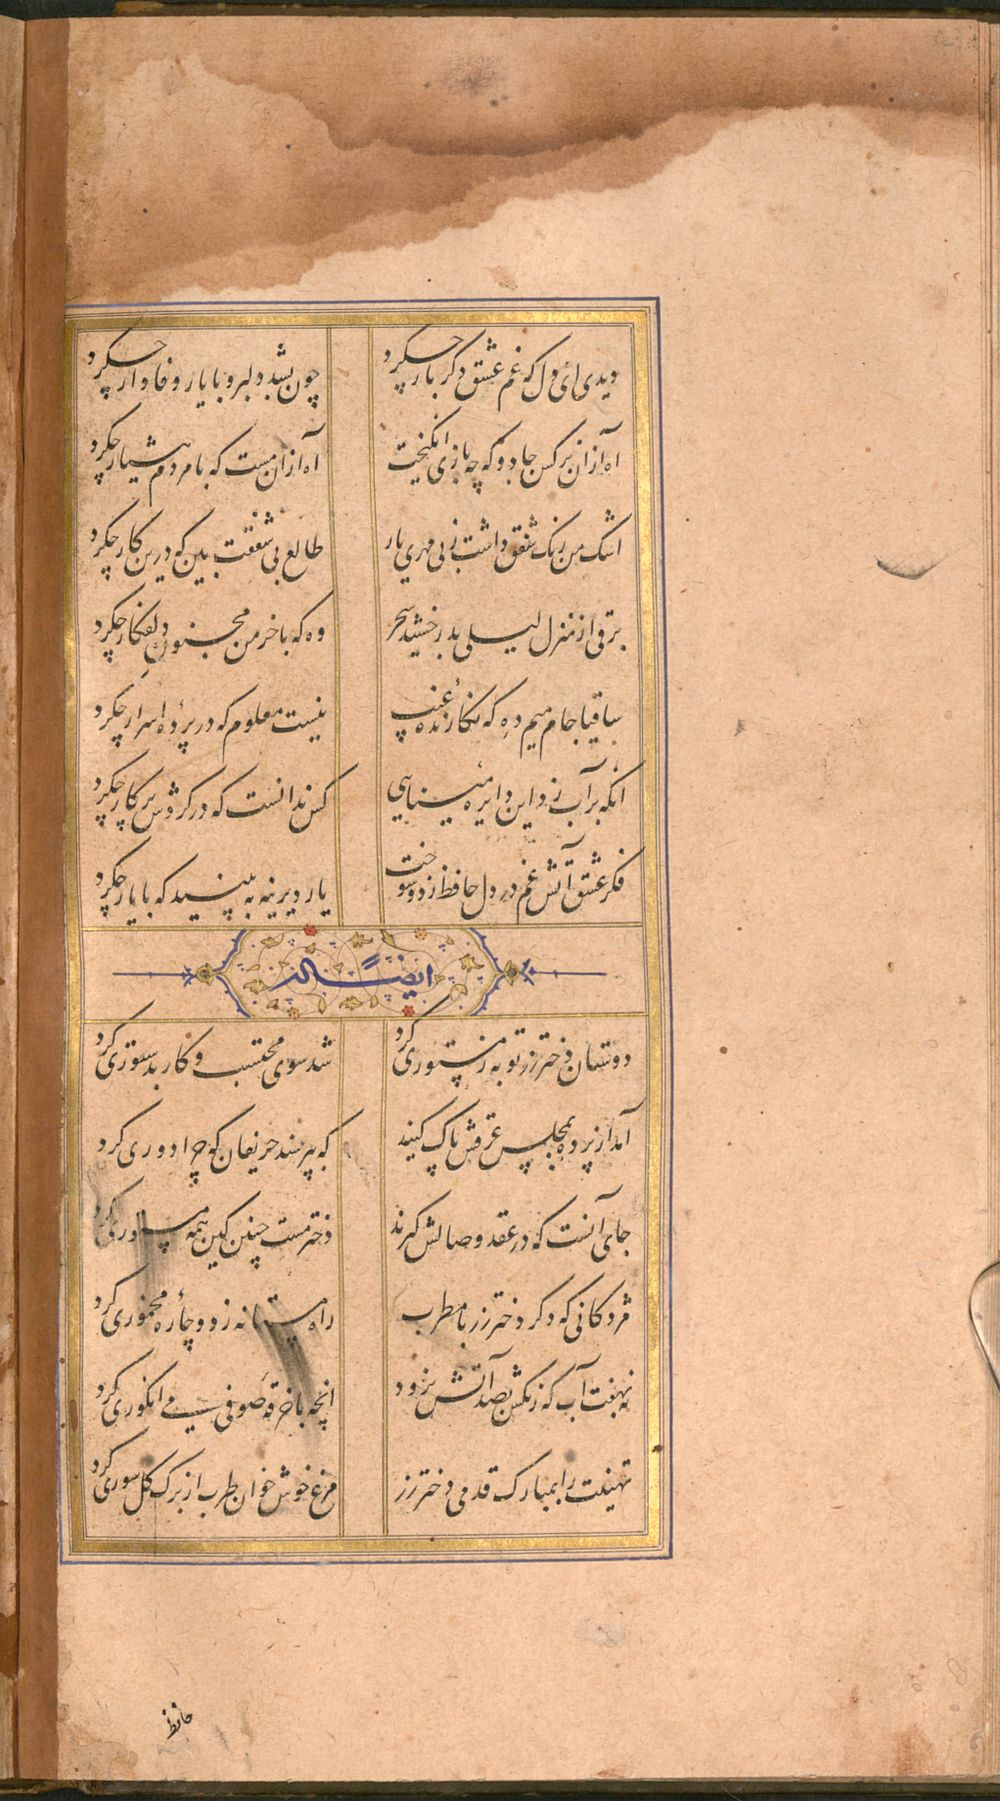 دیدی ای دل که غم عشق دکر بار چکرد
چون بشد دلبر و با یار وفادار چکرد
اه ازان نرکس جادو که چه بازی انکیخت
آه ازان مست که با مردم هشیار چکرد
اشک من رنک شفق داشت ز بی مهری یار
طالع بی شفقت بین که درین کار چکرد
برقی از منزل لیلی بدرخشید سحر
وه که با خرمن مجنون دلفکار چکرد
ساقیا جام میم ده که نکارنده غیب
نیست معلوم که در پرده اسرار چکرد
انکه بر آب زد این دایره مینایی
کس ندانست که در کردش پرکار چکرد
فکر عشق آتش غم در دل حافظ زد و سوخت
یار دیرینه به بینید که با یار چکرد
ایضاً له
دوستان دختر رز توبه ز مستوری کرد
شد سوی محتسب و کار بدستوری کرد
آمد از پرده بمجلس عرقش پاک کنید
که بپرسند حریفان که چرا دوری کرد
جای آنست که در عقد وصالش کیرند
دختر مست چنین کین همه مستوری کرد
مژدکانی که دکر دختر رز با مطرب
راه مستانه زد و چاره مخموری کرد
نه بهفت آب که رنکش بصد آتش نرود
انچه با خرقه صوفی می انکوری کرد
تهنیت را بمبارک قدمی دختر رز
مرغ خوش خوان طرب از برک کل سوری کرد
حافظ